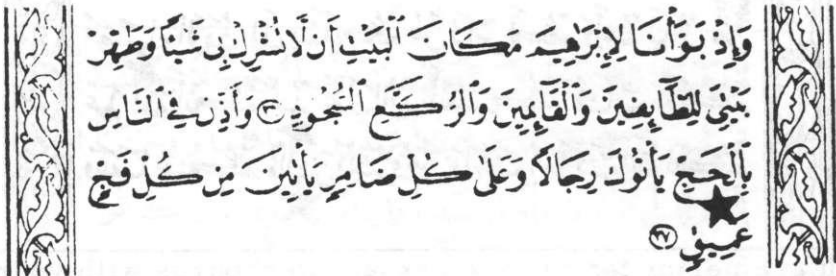 وَإِذْ بَوَّأْنَا لِإِبْرَٰهِيمَ مَكَانَ ٱلْبَيْتِ أَن لَّا تُشْرِكْ بِى شَيْـًٔا وَطَهِّرْ
بَيْتِىَ لِلطَّآئِفِينَ وَٱلْقَآئِمِينَ وَٱلرُّكَّعِ ٱلسُّجُودِ وَأَذِّن فِى ٱلنَّاسِ
بِٱلْحَجِّ يَأْتُوكَ رِجَالًا وَعَلَىٰ كُلِّ ضَامِرٍ يَأْتِينَ مِن كُلِّ فَجٍّ
عَمِيقٍ ٢٧